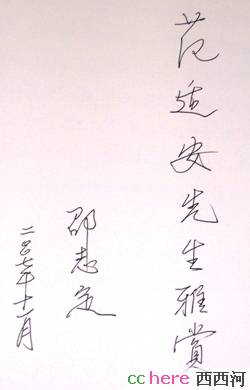 范适安先生雅赏
邵志定
二〇〇七年十一月
cchere 西西河